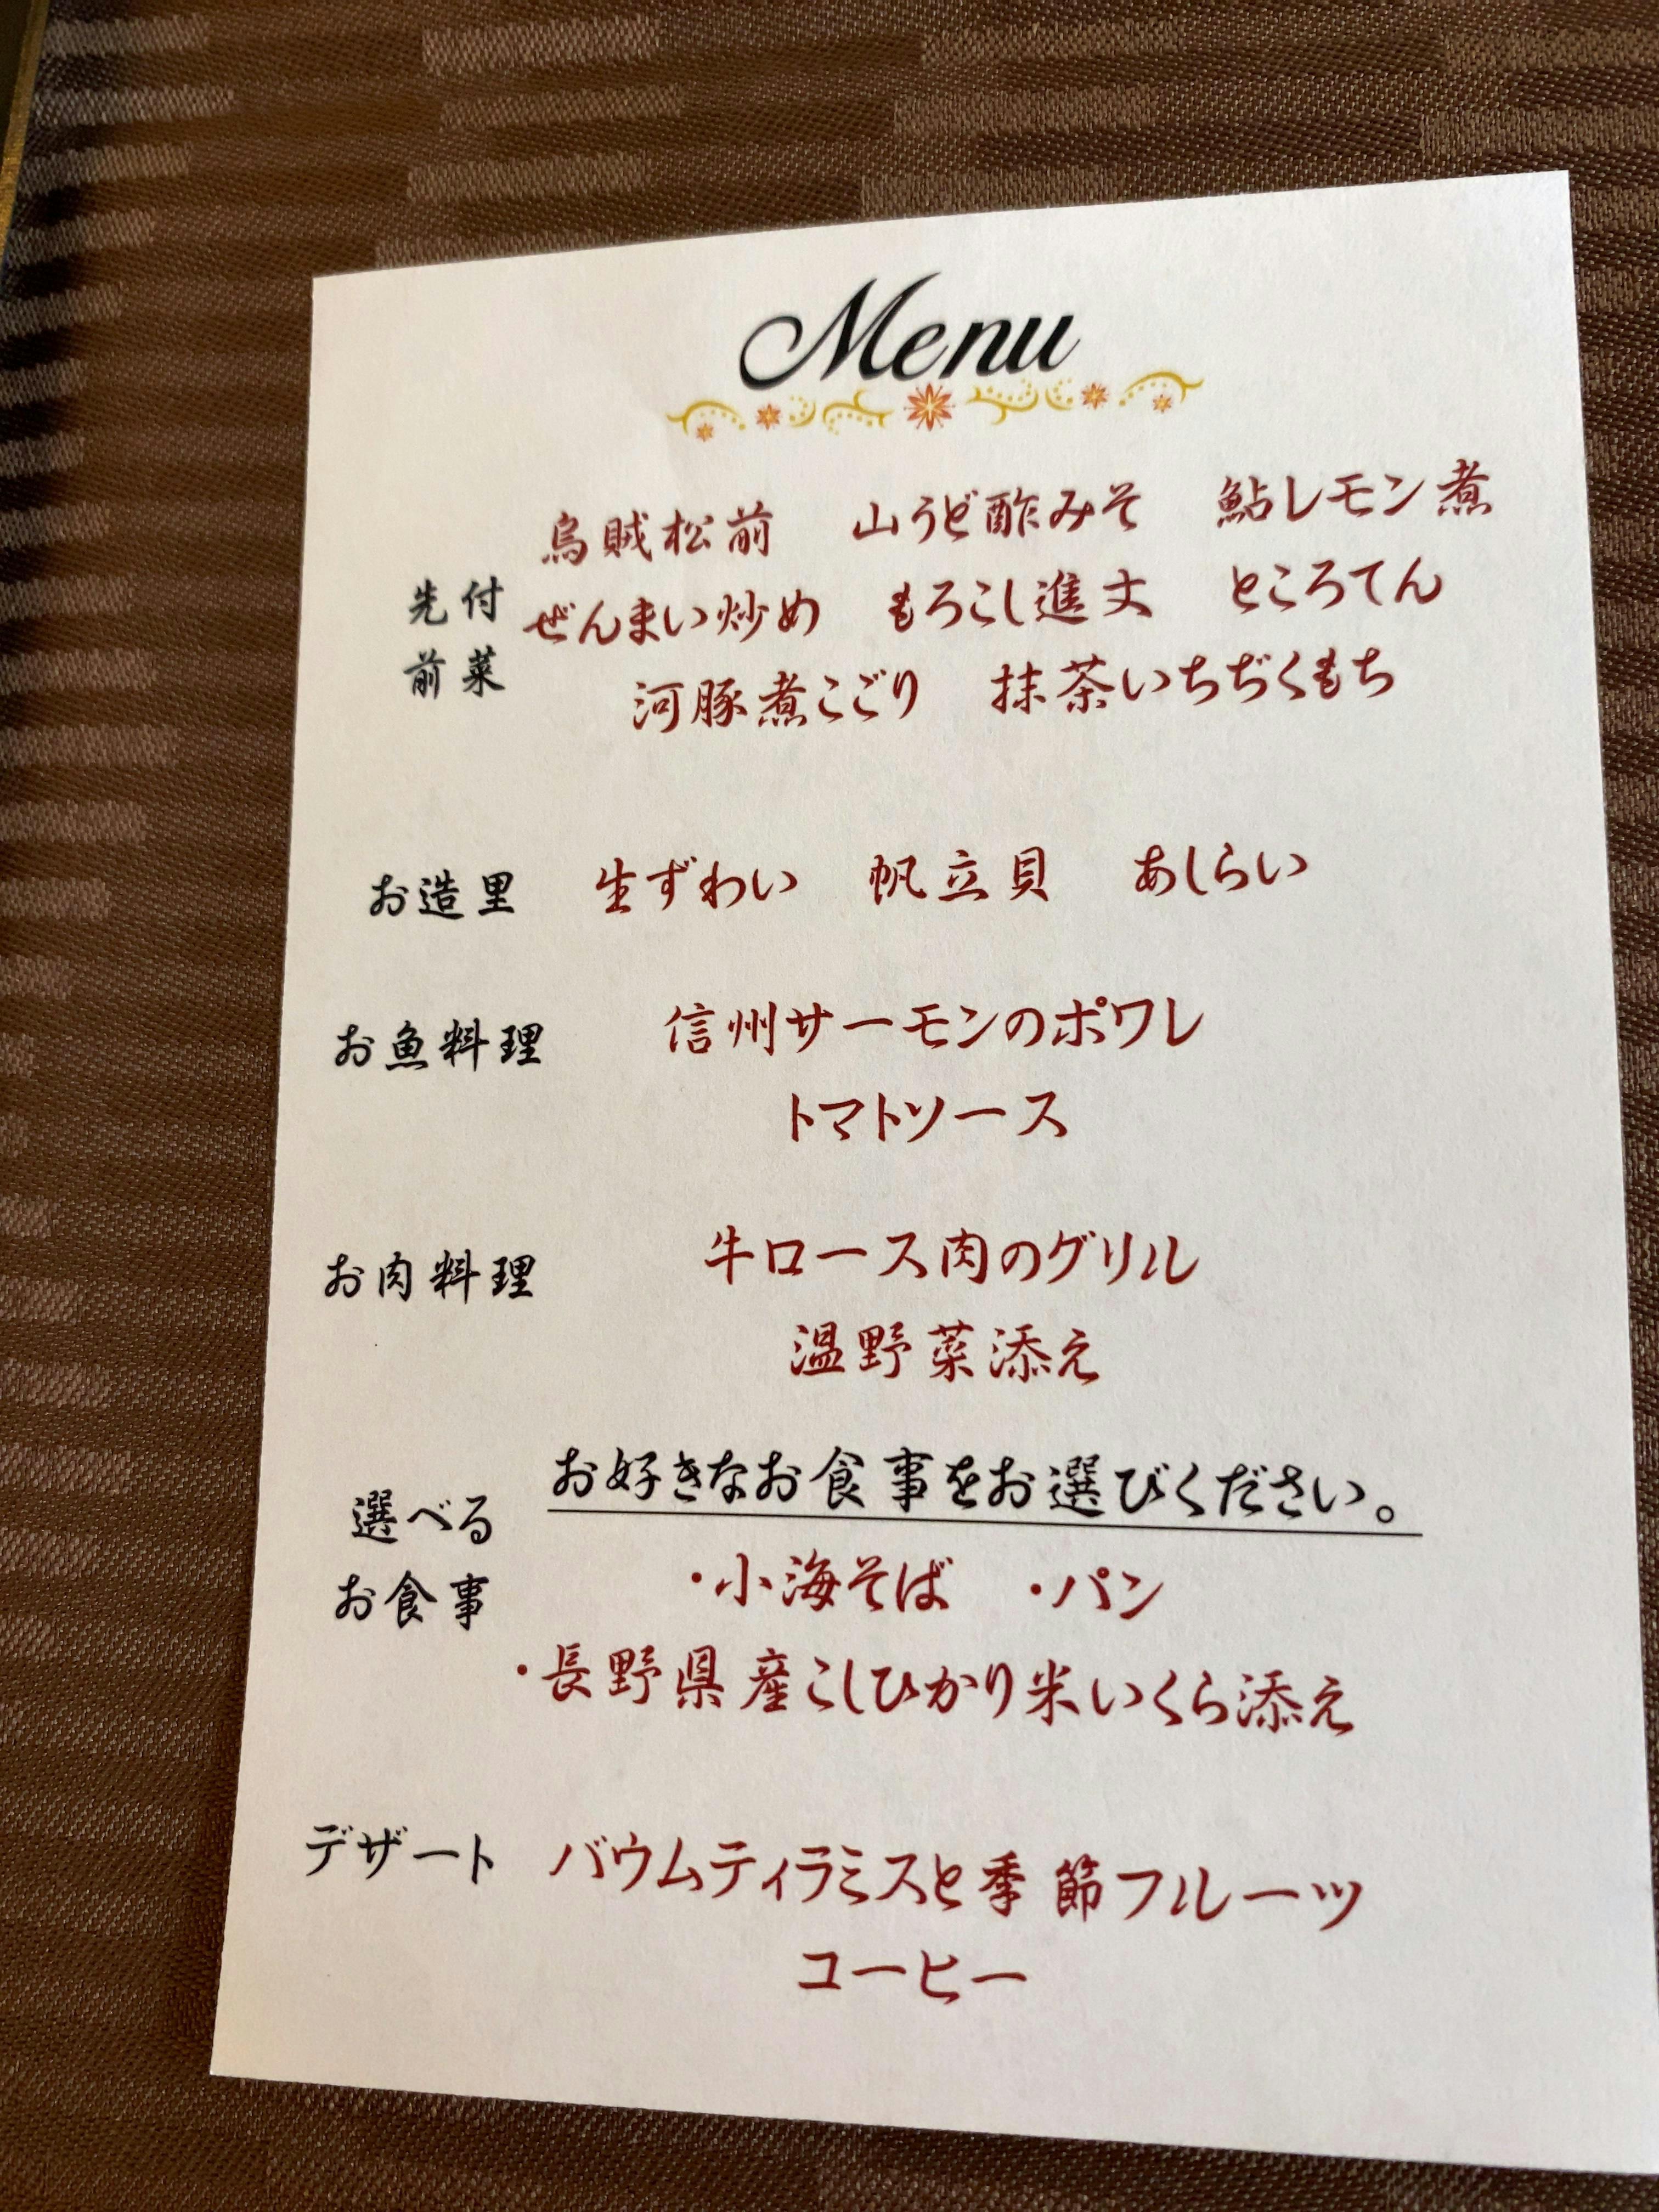 Menu
先付
前菜
烏賊松前 山うど酢みそ 鮎レモン煮
ぜんまい炒め もろこし進丈 ところてん
河豚煮こごり 抹茶いちぢくもち
お造里 生ずわい 帆立貝 あしらい
お魚料理 信州サーモンのポワレ
トマトソース
お肉料理 牛ロース肉のグリル
温野菜添え
選べる
お食事
お好きなお食事をお選びください。
・小海そば ・パン
・長野県産こしひかり米いくら添え
デザート バウムティラミスと季節フルーツ
コーヒー